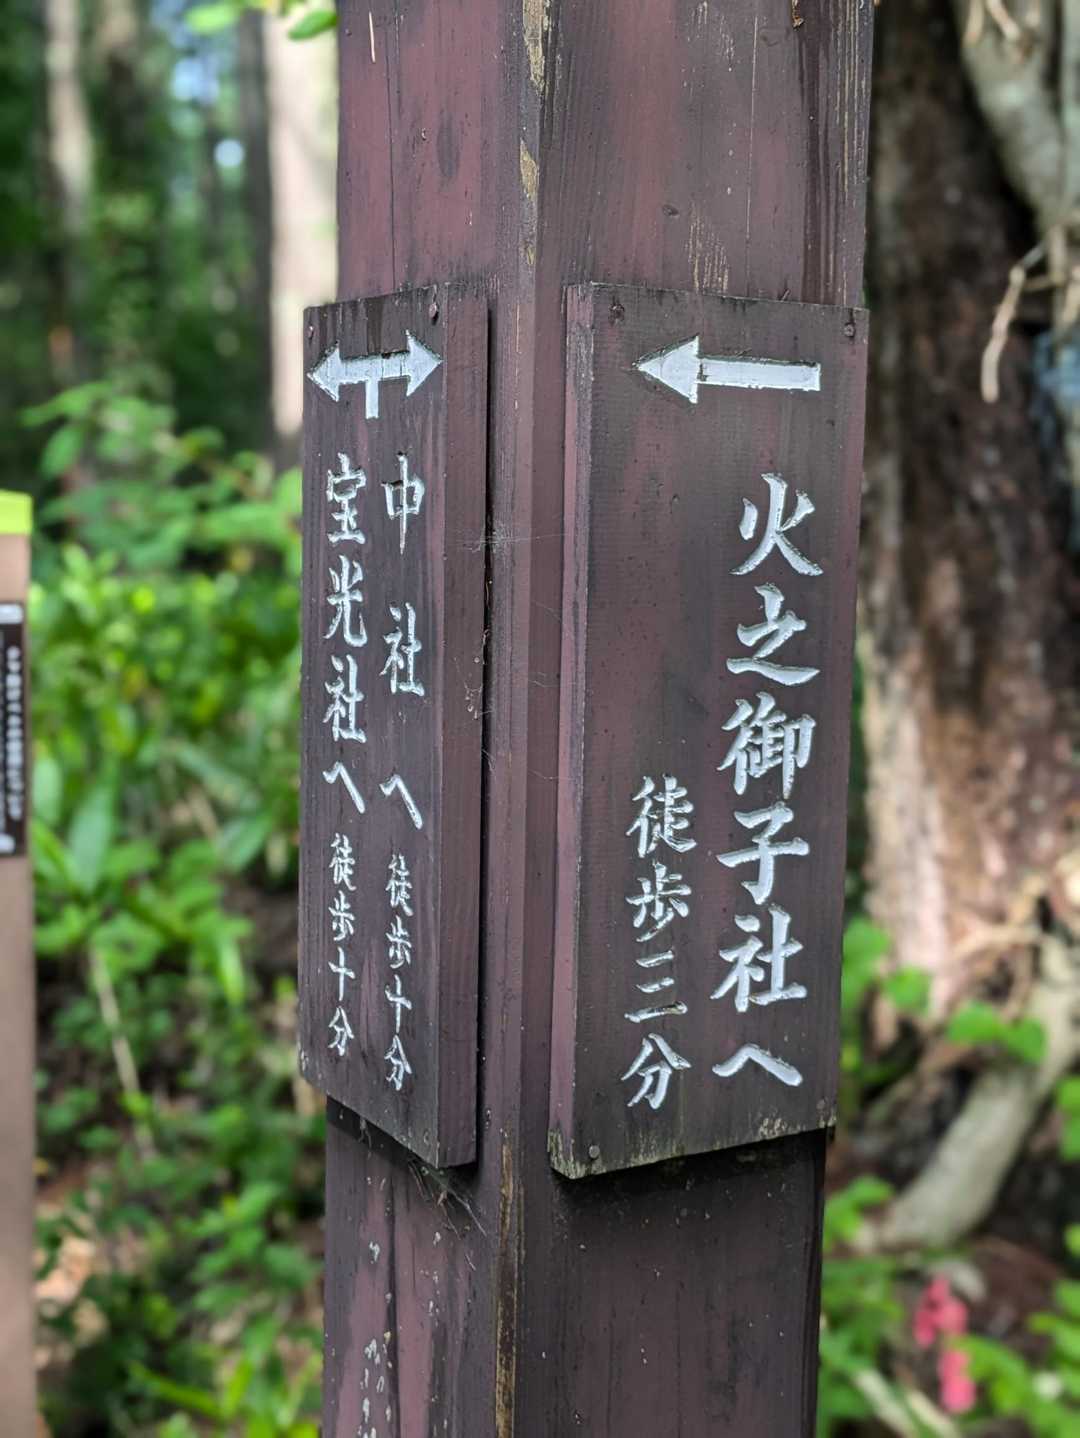 火之御子社へ
徒歩三分
中社へ 徒歩十分
宝光社へ 徒歩十分